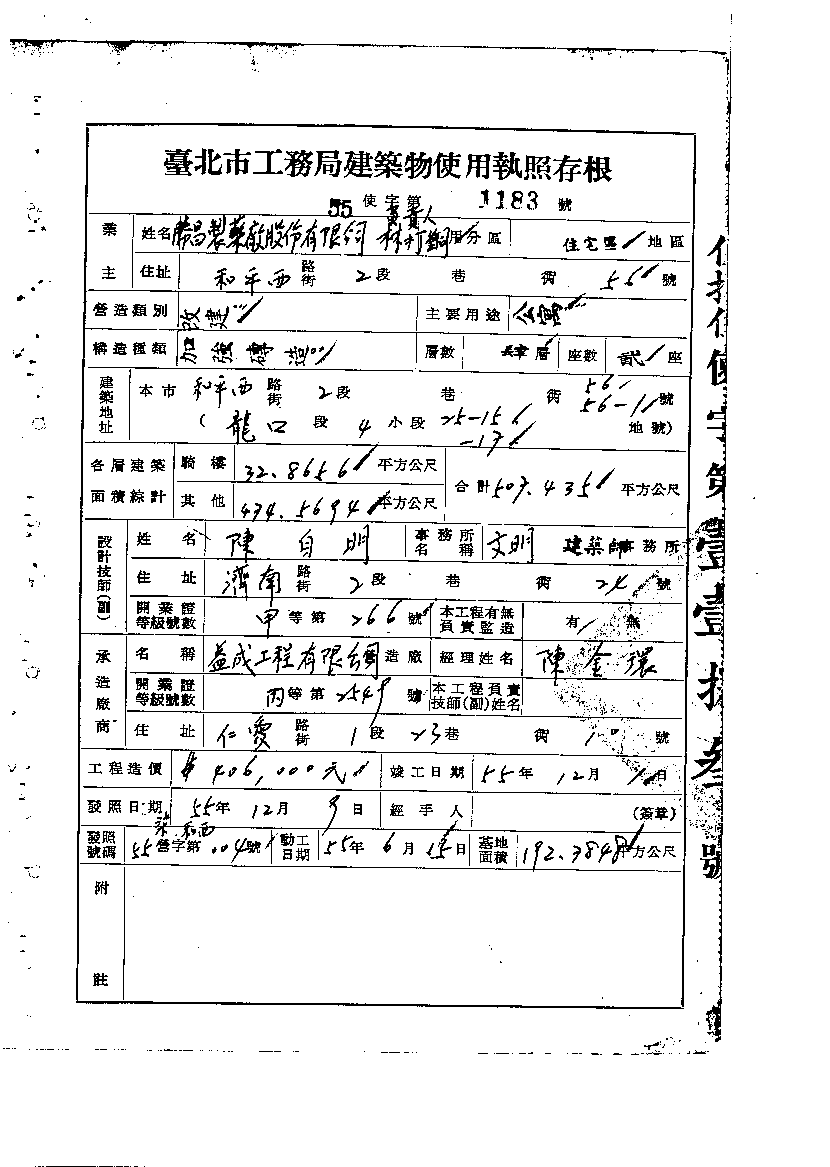 臺北市工務局建築物使用執照存根
55 使字第 1183 號
業主 姓名 勝昌製藥廠股份有限公司 負責人 林 分區 住宅區 地區
住址 和平西 路街 2 段 巷 衖 56 號
營造類別 改建 主要用途 公寓
構造種類 加強磚造 層數 層 座數 貳 座
建築地址 本市 和平西 路街 2 段 巷 衖 56 56-1 號
( 龍口 段 4 小段 25-15 -17 地號)
各層建築面積綜計 騎樓 32.8656 平方公尺 合計 507.435 平方公尺
其他 474.5694 平方公尺
設計技師(副) 姓名 陳自明 事務所名稱 文明 建築師事務所
住址 濟南 路街 2 段 巷 衖 24 號
開業證等級號數 甲 等第 266 號 本工程有無負責監造 有 無
承造廠商 名稱 益成工程有限公司 造廠 經理姓名 陳金環
開業證等級號數 丙 等第 2549 號 本工程負責技師(副)姓名
住址 仁愛 路街 1 段 23 巷 衖 10 號
工程造價 $406,000元 竣工日期 55 年 12 月 日
發照日期 55 年 12 月 9 日 經手人 (簽章)
發照號碼 55 營字第 和西 004 號 動工日期 55 年 6 月 15 日 基地面積 192.3848 平方公尺
附註
使字第壹壹捌叁號